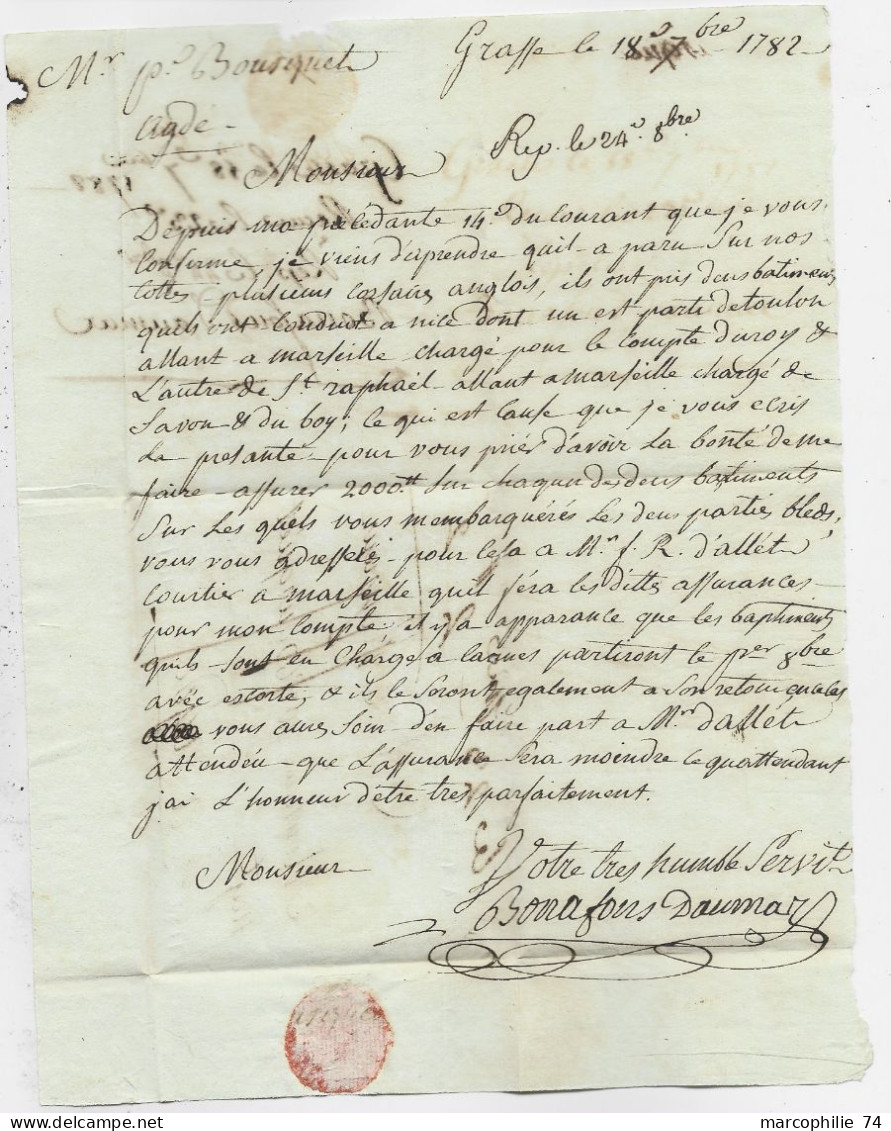 Grasse le 18e 7bre 1782
Mr pe Bousquet
agde
Rep. le 24e 8bre
Monsieur
Depuis ma précédante 14e du Courant que je vous
Confirme, je viens d'aprendre quil a paru Sur nos
Cottes plusieurs Corsaires anglois, ils ont pris deus batiments
quils ont Conduit a nice dont un est parti detoulon
allant a marseille chargé pour le Compte duroy &
L'autre de St raphaël allant a marseille chargé de
Savon & du boy; Ce qui est Cause que je vous ecris
La presante pour vous priér d'avoir La bonté de me
faire assurer 2000tt Sur chaqun des deus batiments
Sur Les quels vous membarquérés Les deus partiés bleds,
vous vous adresserés pour Cela a Mr f. R. d'allét
Courtier a marseille quil féra les dittes assurances
pour mon Compte il y a apparance que les baptiments
quils sont en Charge a partiront le per 8bre
avéc escorte, & ils le Seront egalement a Son retour
vous aures Soin d'en faire part a Mr dallét
attendéu que L'assurance Sera moindre Ce quattendant
j'ai L'honneur d'étre tres parfaitement.
Monsieur
Votre tres humble Servitr
Bonafons Daumas
marcophilie 74